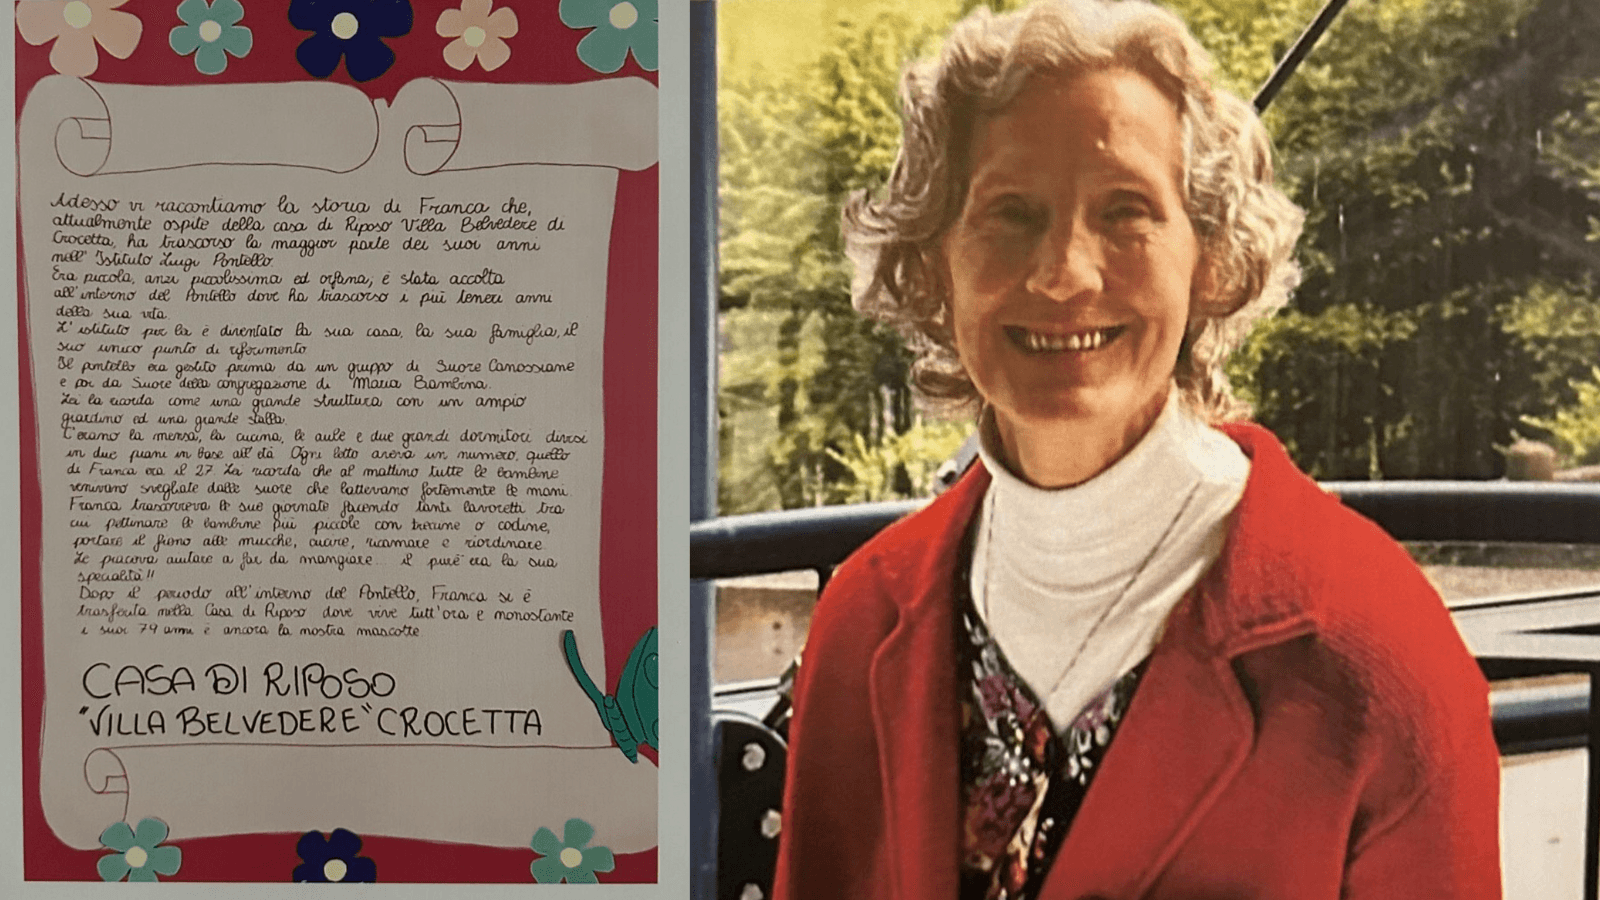 Adesso vi raccontiamo la storia di Franca che,
attualmente ospite della casa di Riposo Villa Belvedere di
Crocetta, ha trascorso la maggior parte dei suoi anni
nell'Istituto Luigi Pontello.
Era piccola, anzi piccolissima ed orfana; è stata accolta
all'interno del Pontello dove ha trascorso i più teneri anni
della sua vita.
L'istituto per lei è diventato la sua casa, la sua famiglia, il
suo unico punto di riferimento.
Il pontello era gestito prima da un gruppo di Suore Canossiane
e poi da Suore della congregazione di Maria Bambina.
Lei la ricorda come una grande struttura con un ampio
giardino ed una grande stalla.
C'erano la mensa, la cucina, le aule e due grandi dormitori divisi
in due piani in base all'età. Ogni letto aveva un numero, quello
di Franca era il 27. La ricorda che al mattino tutte le bambine
venivano svegliate dalle suore che battevano fortemente le mani.
Franca trascorreva le sue giornate facendo tanti lavoretti tra
cui pettinare le bambine più piccole con treccine o codine,
portare il fieno alle mucche, cucire, ricamare e riordinare.
Le piaceva aiutare a far da mangiare... il purè era la sua
specialità!!
Dopo il periodo all'interno del Pontello, Franca si è
trasferita nella Casa di Riposo dove vive tutt'ora e nonostante
i suoi 79 anni è ancora la nostra mascotte.
CASA DI RIPOSO
"VILLA BELVEDERE" CROCETTA